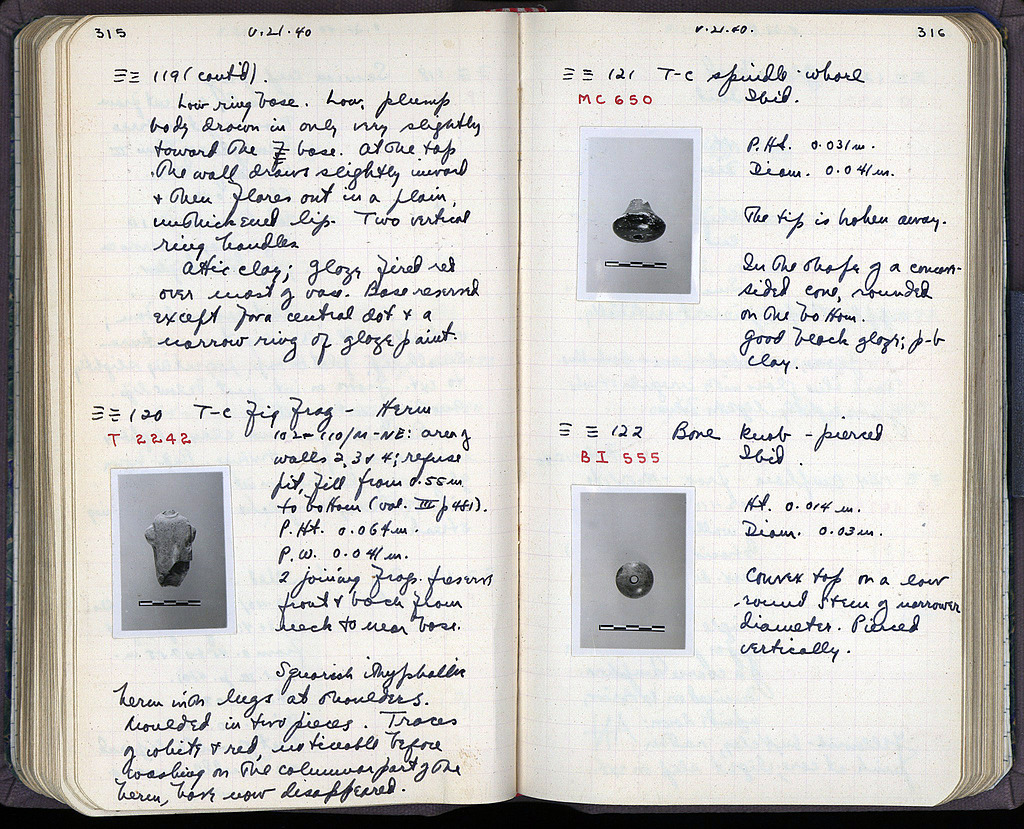 315
V.21.40
119 (cont'd).
Low ring base. Low, plump
body drawn in only very slightly
toward the base. At the top
the wall draws slightly inward
& then flares out in a plain,
unthickened lip. Two vertical
ring handles
Attic clay; glaze fired red
over most of vase. Base reserved
except for a central dot & a
narrow ring of glaze paint.
120 T-C fig frag - Herm
T 2242
102-110/M-NE: area of
walls 2, 3 & 4; refuse
pit, fill from 0.55m
to bottom (vol. III p 481).
P.Ht. 0.064m.
P.W. 0.041m.
2 joining frags. preserve
front & back from
neck to near base.
Squarish ithyphallic
herm with lugs at shoulders.
Moulded in two pieces. Traces
of white & red, noticeable before
washing on the columnar part of the
herm, have now disappeared.
V.21.40.
316
121 T-C spindle-whorl
MC 650 Ibid.
P.Ht. 0.031m.
Diam. 0.041m.
The tip is broken away.
In the shape of a concave-
sided cone, rounded
on the bottom.
Good black glaze; p-b
clay.
122 Bone knob - pierced
BI 555 Ibid.
Ht. 0.014m.
Diam. 0.03m.
Convex top on a low
round stem of narrower
diameter. Pierced
vertically.